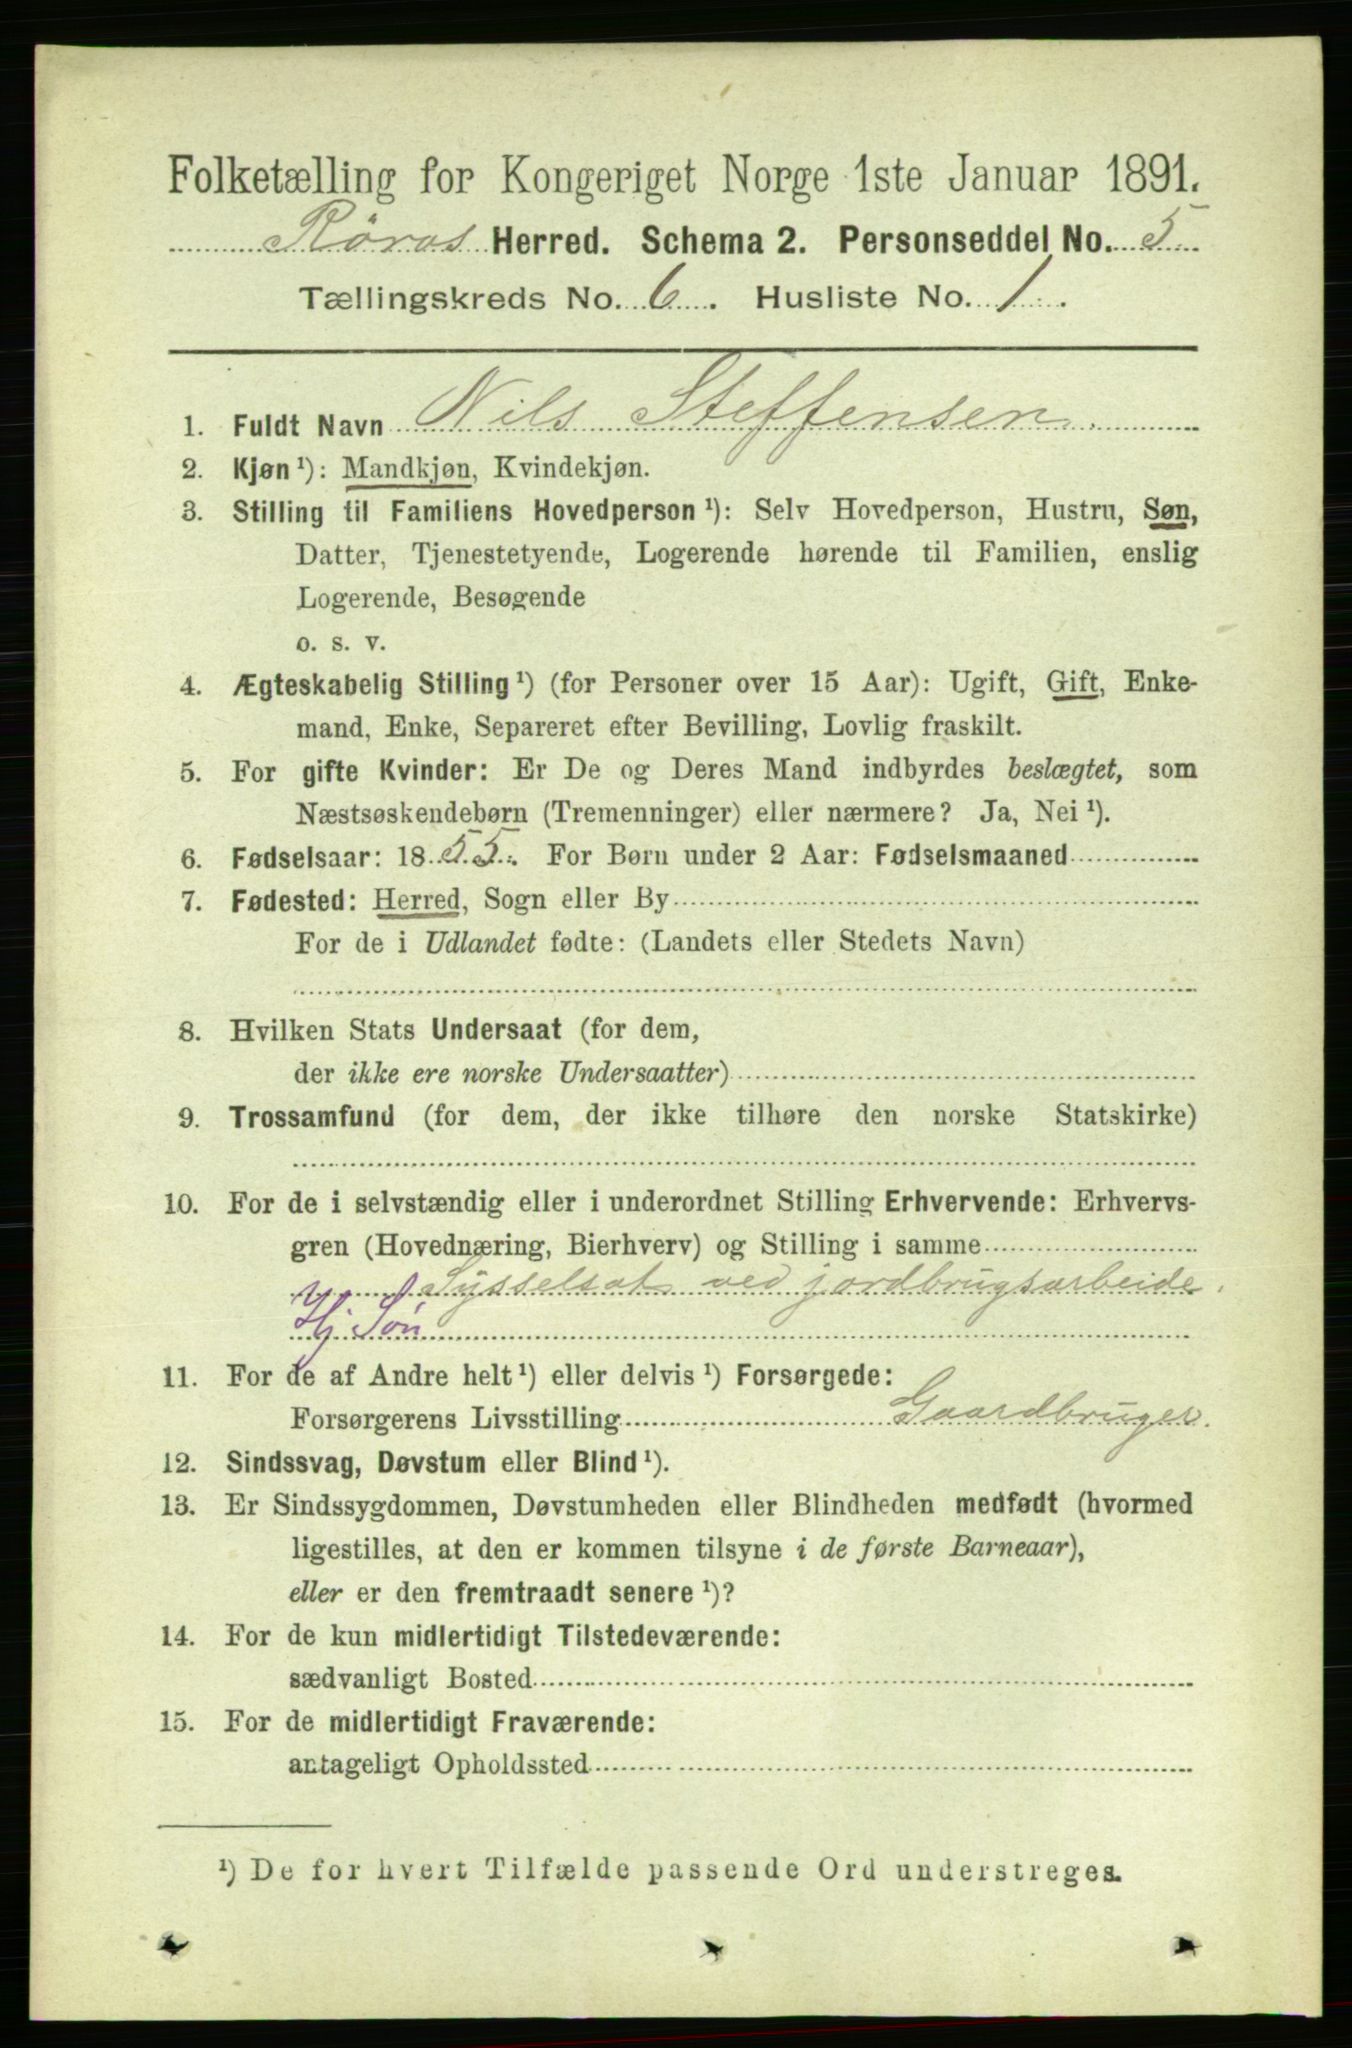 Folketælling for Kongeriget Norge 1ste Januar 1891.
Röros Herred. Schema 2. Personseddel No. 5
Tællingskreds No. 6. Husliste No. 1.
1. Fuldt Navn Nils Steffensen
2. Kjøn ¹): Mandkjøn, Kvindekjøn.
3. Stilling til Familiens Hovedperson ¹): Selv Hovedperson, Hustru, Søn,
Datter, Tjenestetyende, Logerende hørende til Familien, enslig
Logerende, Besøgende
o. s. v.
4. Ægteskabelig Stilling ¹) (for Personer over 15 Aar): Ugift, Gift, Enke-
mand, Enke, Separeret efter Bevilling, Lovlig fraskilt.
5. For gifte Kvinder: Er De og Deres Mand indbyrdes beslægtet, som
Næstsøskendebørn (Tremenninger) eller nærmere? Ja, Nei ¹).
6. Fødselsaar: 1855. For Børn under 2 Aar: Fødselsmaaned
7. Fødested: Herred, Sogn eller By
For de i Udlandet fødte: (Landets eller Stedets Navn)
8. Hvilken Stats Undersaat (for dem,
der ikke ere norske Undersaatter)
9. Trossamfund (for dem, der ikke tilhøre den norske Statskirke)
10. For de i selvstændig eller i underordnet Stilling Erhvervende: Erhvervs-
gren (Hovednæring, Bierhverv) og Stilling i samme
Sysselsat ved jordbrugsarbeide.
Hj Søn
11. For de af Andre helt ¹) eller delvis ¹) Forsørgede:
Forsørgerens Livsstilling Gaardbruger.
12. Sindssvag, Døvstum eller Blind ¹).
13. Er Sindssygdommen, Døvstumheden eller Blindheden medfødt (hvormed
ligestilles, at den er kommen tilsyne i de første Barneaar),
eller er den fremtraadt senere ¹)?
14. For de kun midlertidigt Tilstedeværende:
sædvanligt Bosted
15. For de midlertidigt Fraværende:
antageligt Opholdssted
¹) De for hvert Tilfælde passende Ord understreges.